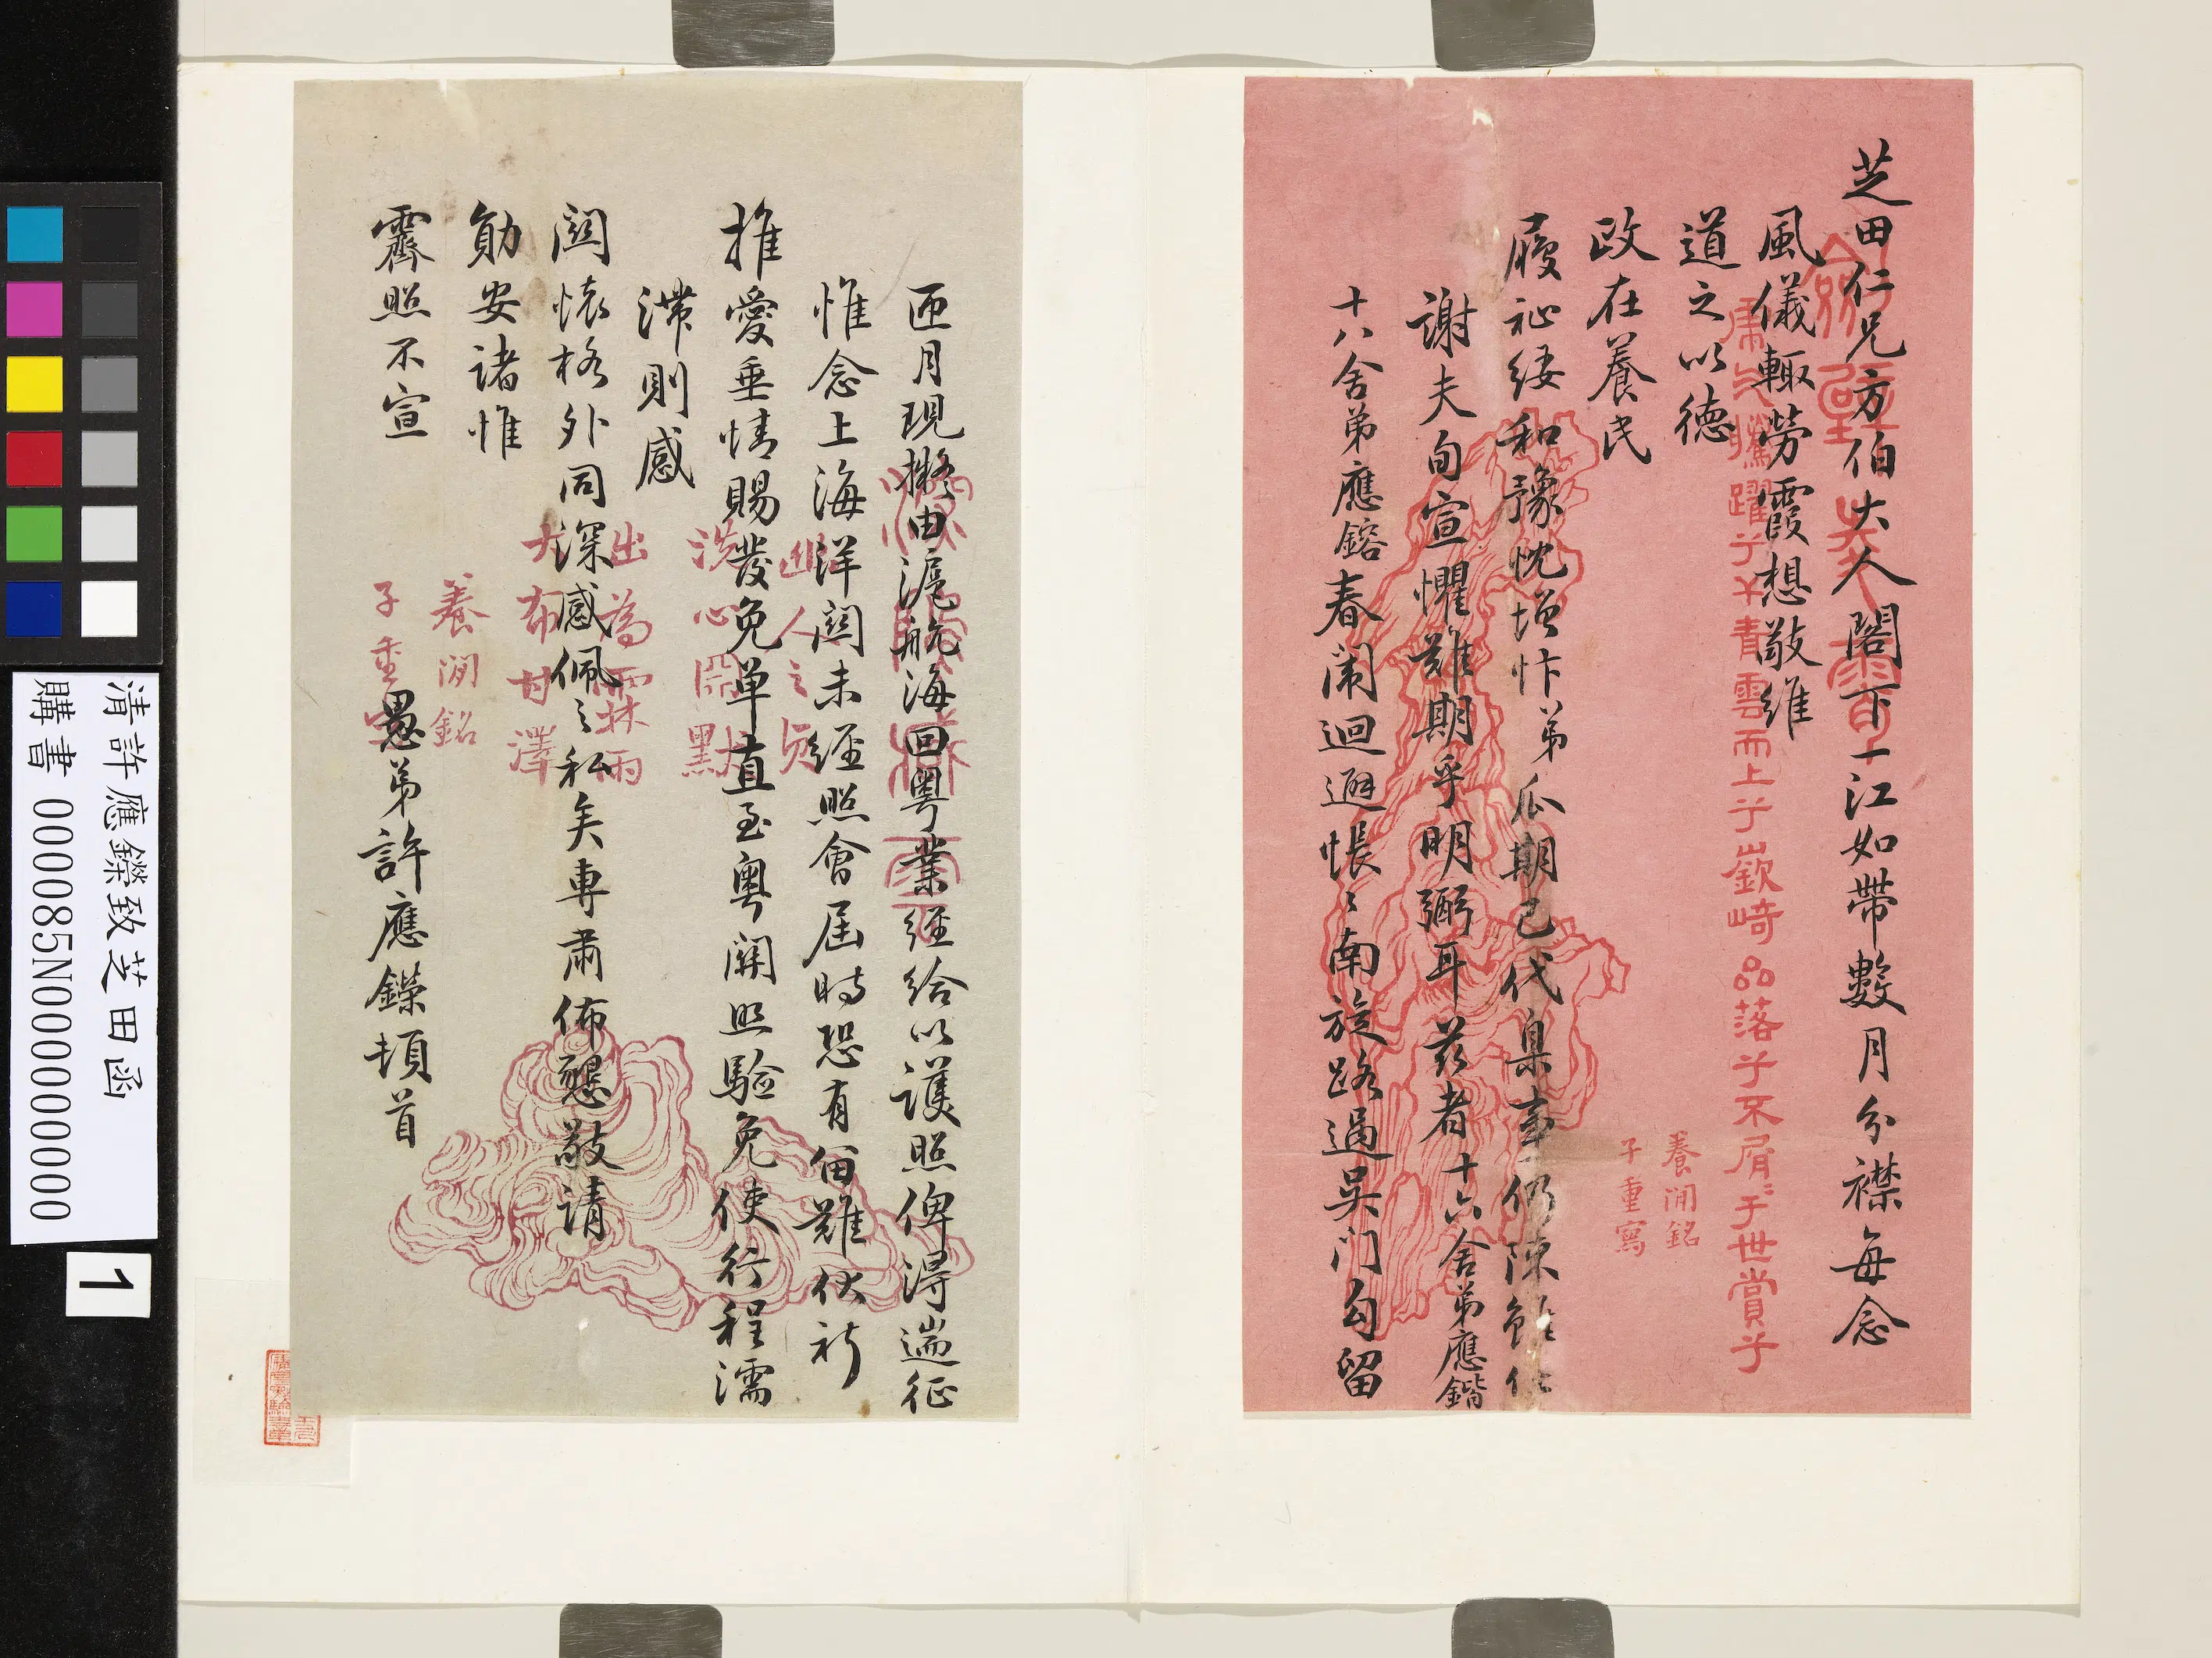 芝田仁兄方伯大人閣下一江如帶數月分襟每念
風儀輒勞霞想敬維
道之以德
政在養民
履祉綏和豫忱增忭弟瓜期已代臬事仍陳
謝夫旬宣懼難期乎明弼耳茲者十六舍弟應鍇
十八舍弟應鎔春闈迴避悵〻南旋路過吳門勾留
匝月現擬由滬航海回粵業經給以護照俾得遄征
惟念上海洋關未經照會屆時恐有留難伏祈
推愛垂情賜發免單直至粵關照驗免使行程濡
滯則感
關懷格外同深感佩之私矣專肅佈懇敬請
勛安諸惟
霽照不宣
愚弟許應鑅頓首
虎父騰躍乎青雲而上乎嶔崎品落乎不屑于世賞乎
養泂銘
子重寫
幽人之貞
洗心
出為霖雨
大布甘澤
養泂銘
子重
清許應鑅致芝田函
購書 000085N000000000
1